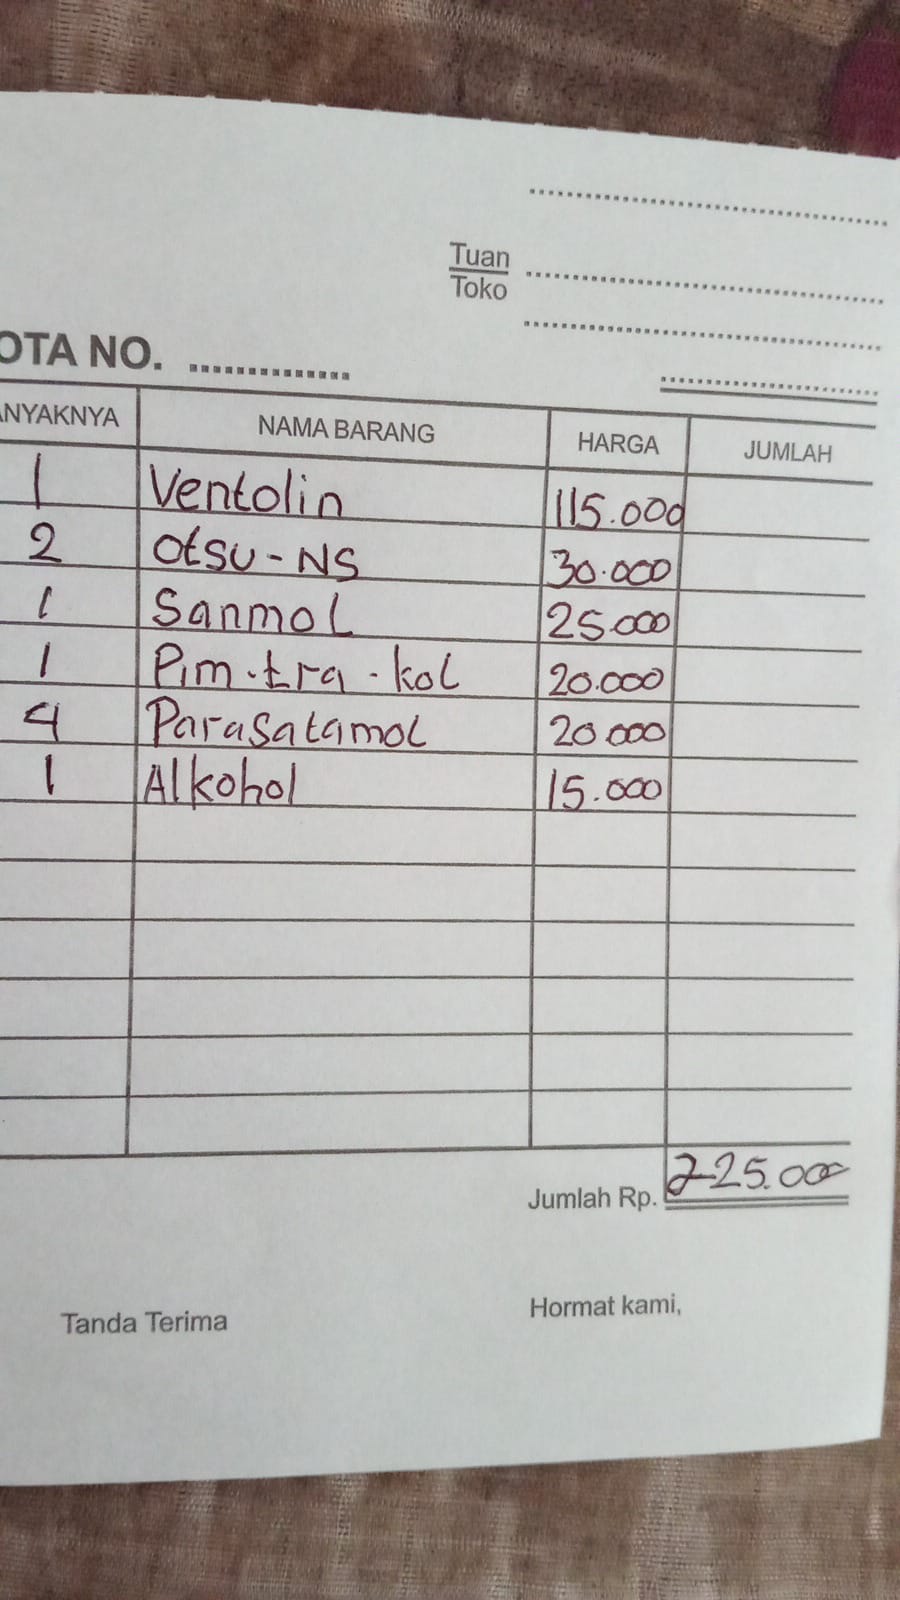 Tuan
Toko
OTA NO.
ANYAKNYA NAMA BARANG HARGA JUMLAH
1 Ventolin 115.000
2 Otsu-NS 30.000
1 Sanmol 25.000
1 Pim.tra.kol 20.000
4 Parasatamol 20.000
1 Alkohol 15.000
Jumlah Rp. 225.000
Tanda Terima Hormat kami,